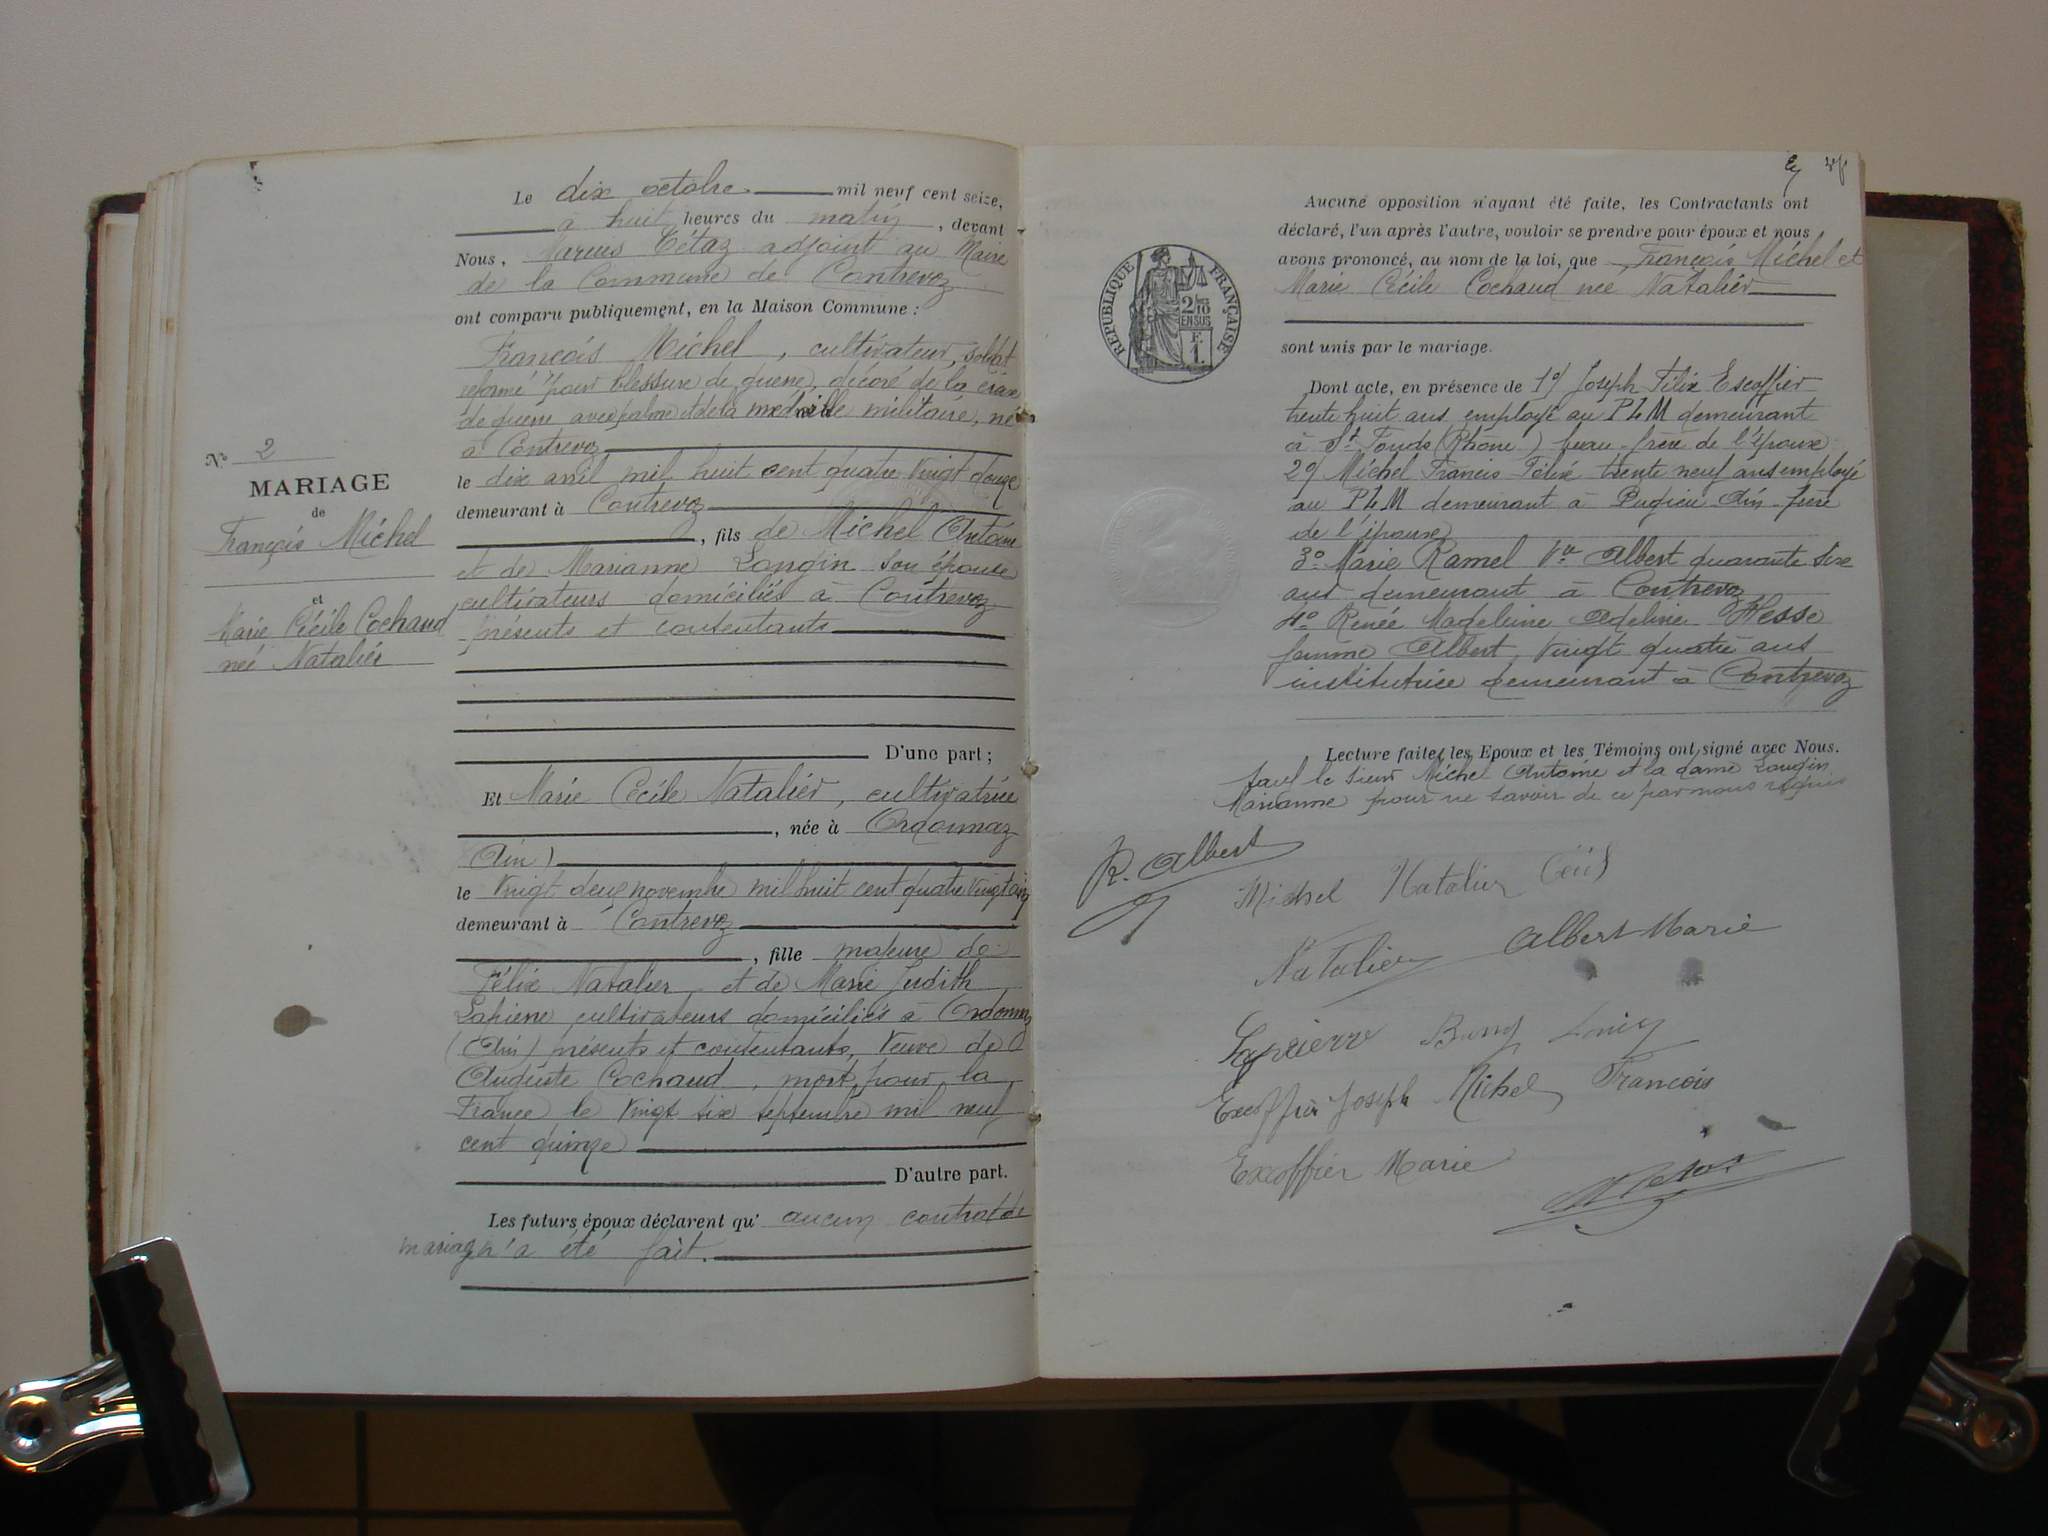 Le dix octobre mil neuf cent seize,
à huit heures du matin, devant
Nous, Marius Tétaz adjoint au Maire
de la Commune de Contrevoz
ont comparu publiquement, en la Maison Commune :
François Michel, cultivateur, soldat
réformé pour blessure de guerre, décoré de la croix
de guerre avec palme et de la médaille militaire, né
à Contrevoz
le dix avril mil huit cent quatre vingt douze
demeurant à Contrevoz
, fils de Michel Antoine
et de Marianne Longin son épouse
cultivateurs domiciliés à Contrevoz
présents et consentants
D'une part ;
N° 2
MARIAGE
de
François Michel
et
Marie Cécile Cochaud
née Natalier
Et Marie Cécile Natalier, cultivatrice
, née à Ordonnaz
Ain)
le vingt deux novembre mil huit cent quatre vingt cinq
demeurant à Contrevoz
, fille majeure de
Félix Natalier et de Marie Judith
Lapierre cultivateurs domiciliés à Ordonnaz
(Ain) présents et consentants, Veuve de
Auguste Cochaud, mort pour la
France le vingt six septembre mil neuf
cent quinze
D'autre part.
Les futurs époux déclarent qu' aucun contrat de
mariage n'a été fait.
Aucune opposition n'ayant été faite, les Contractants ont
déclaré, l'un après l'autre, vouloir se prendre pour époux et nous
avons prononcé, au nom de la loi, que François Michel et
Marie Cécile Cochaud née Natalier
sont unis par le mariage.
RÉPUBLIQUE FRANÇAISE
2/10
EN SUS
F.
1.
Dont acte, en présence de 1°/ Joseph Félix Escoffier
trente huit ans employé au PLM demeurant
à St Fonds (Rhône) beau-frère de l'épouse
2°/ Michel Francis Félix trente neuf ans employé
au PLM demeurant à Pugieu Ain frère
de l'épouse
3° Marie Ramel Vve Albert quarante six
ans demeurant à Contrevoz
4° Renée Madeleine Adeline Hesse
femme Albert, vingt quatre ans
institutrice demeurant à Contrevoz
Lecture faite, les Epoux et les Témoins ont signé avec Nous.
sauf le sieur Michel Antoine et la dame Longin
Marianne pour ne savoir de ce par nous requis
R. Albert
Michel Natalier
Natalier Albert Marie
Lapierre
Excoffier Joseph Michel Francois
Excoffier Marie